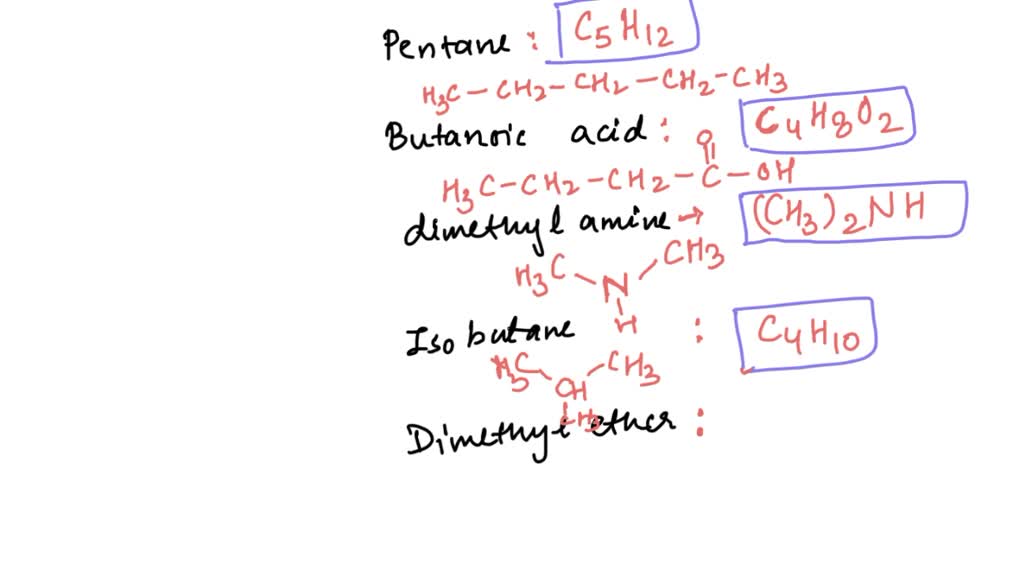 Pentane : C5H12
H3C - CH2 - CH2 - CH2 - CH3
Butanoic acid : C4H8O2
O
H3C - CH2 - CH2 - C - OH
dimethyl amine → (CH3)2NH
H3C - N - CH3
H
Isobutane : C4H10
H3C - CH - CH3
CH3
Dimethyl ether :